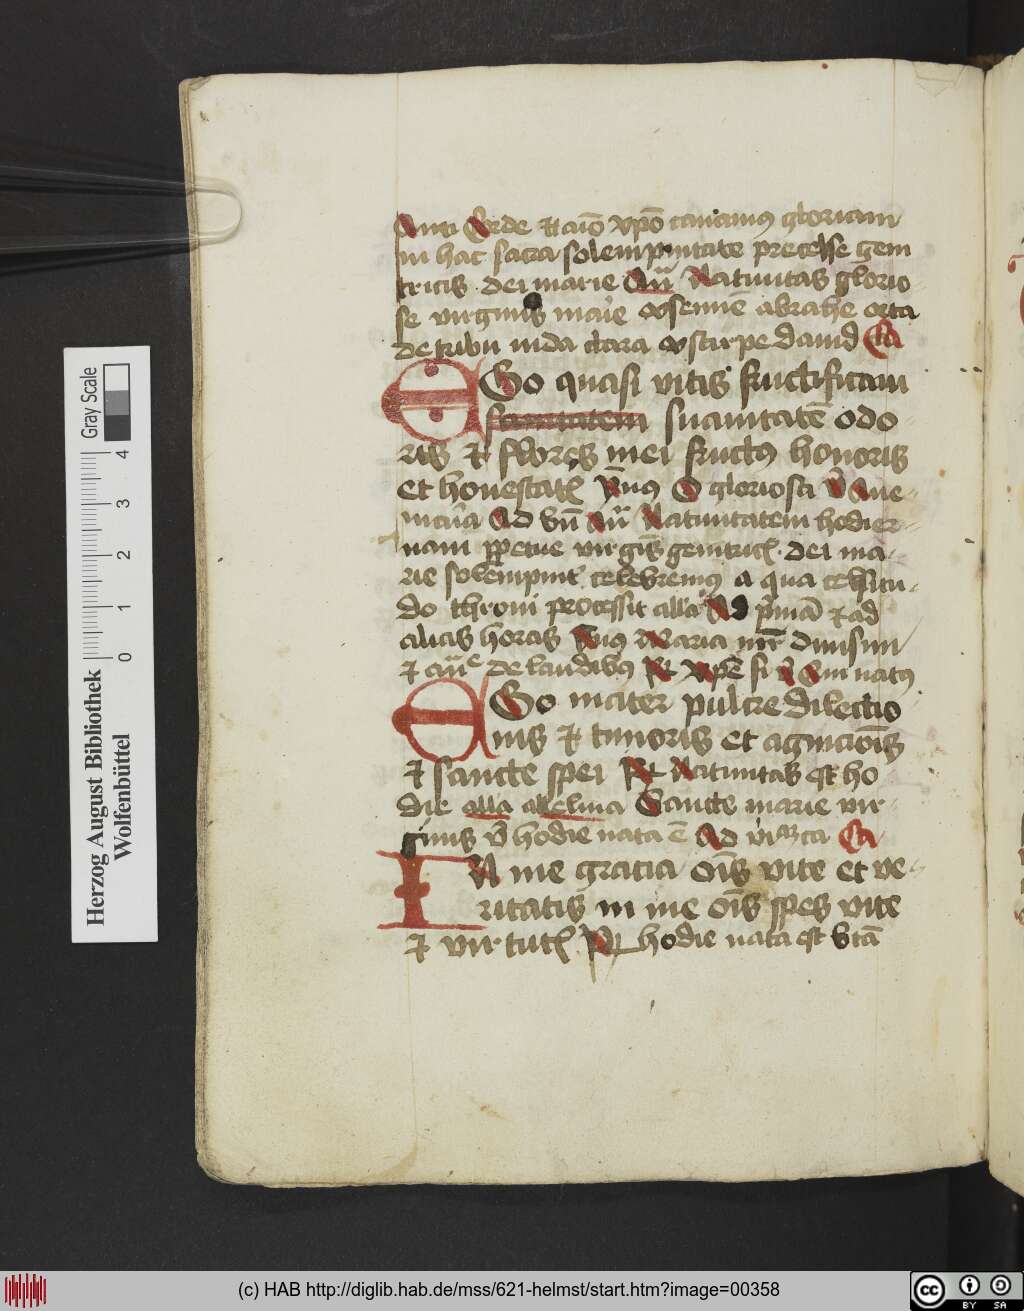 Corde et aīo xpō canamus gloriam
in hac sacra solempnitate precelse geni
tricis dei marie Añ Natiuitas glorio
se virginis marie ex semīe abrahe orta
de tribu iuda clara ex stirpe dauid Ca
EGo quasi vitis fructificaui
suauitatē odo
ris et flores mei fructus honoris
et honestatis gloriosa
Ad Natiuitatem hodier
nam ppetue virginis genitricis dei ma
rie solempnit celebremus a qua celsitu
do throni processit alla Ad pimā et ad
alias horas Maria
de laudibus natus
EGo mater pulcre dilectio
nis et timoris et agnicōis
et sancte spei Natiuitas est ho
die alla alleluia Sancte marie vir
ginis hodie nata ē Ad Ca
IN me gracia ōis vite et ve
ritatis in me ōis spes vite
et virtutis hodie nata est
Herzog August Bibliothek
Wolfenbüttel
Gray Scale
0 1 2 3 4
(c) HAB http://diglib.hab.de/mss/621-helmst/start.htm?image=00358
cc BY SA